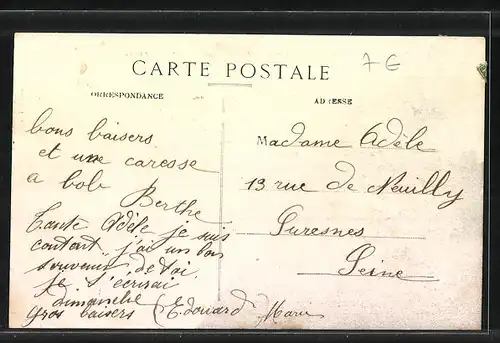 7€
CARTE POSTALE
ORRESPONDANCE
AD ESSE
bons baisers
et une caresse
a bob
Berthe
Tante Adèle je suis
contant j'ai un bon
souvenir de toi
je t'écrirai
dimanche
gros baisers (Edouard Marie
Madame Adèle
13 rue de Neuilly
Suresnes
Seine